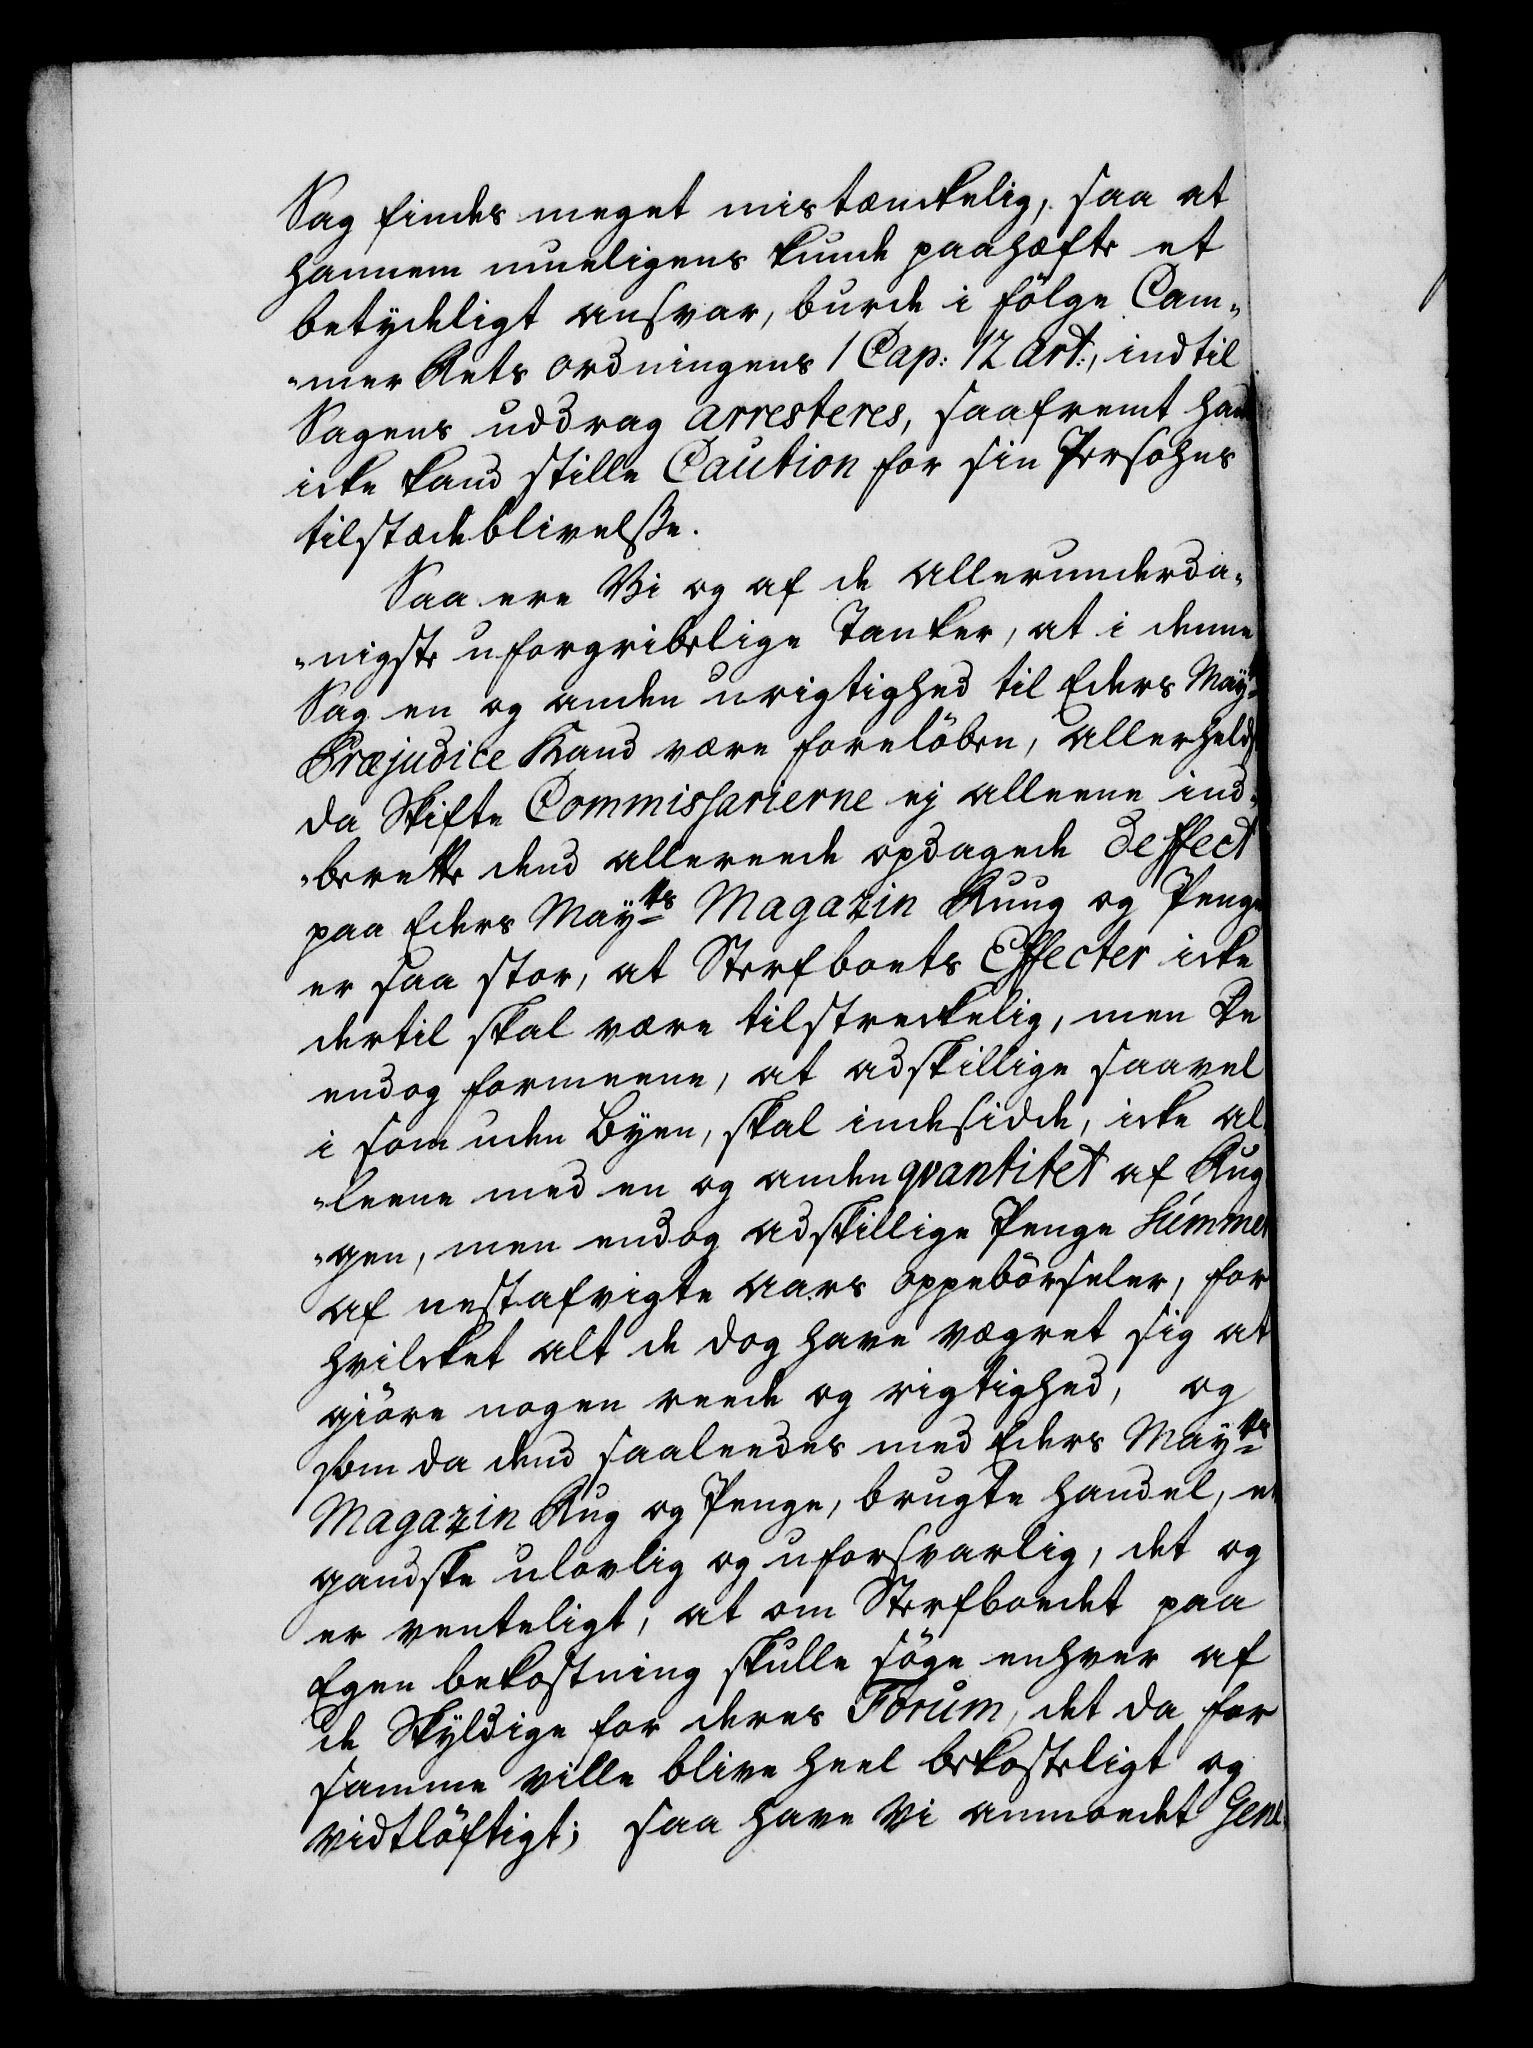 Sag findes meget mistænckelig, saa at
hannem mueligens kunde paahæfte et
betydeligt ansvar, burde i fölge Cam„
„mer Rets ordningens 1 Cap: 12 Art:, indtil
Sagens uddrag arresteres, saafremt hand
icke kand stille Caution for sin Persohns
tilstædeblivelsse.
Saa ere Vi og af de allerunderda„
„nigste uforgribelige Tanker, at i denne
Sag en og anden urigtighed til Eders Mayts
Præjudice kand være foreløben, allerhelst
da Skifte Commissarierne ej alleene ind„
„berette dend allereede opdagede deffect
paa Eders Mayts Magazin Ruug og Penge
er saa stor, at Sterfboets Effecter icke
dertil skal være tilstreckelig, men De
endog formeene, at adskillige saavel
i som uden Byen, skal indesidde, icke al„
„leene med en og anden qvantitet af Rug„
„gen, men endog adskillige Penge Summer
af nestafvigte aars oppebörseler, for
hvilcket alt de dog have vægret sig at
giöre nogen reede og rigtighed, og
som da dend saaleedes med Eders Mayts
Magazin Rug og Penge, brugte handel, er
gandske ulovlig og uforsvarlig, det og
er venteligt, at om Sterfboedet paa
Egen bekostning skulle söge enhver af
de Skyldige for deres Forum, det da for
samme ville blive heel bekosteligt og
vidtløftigt; saa have Vi anmodet Gene„